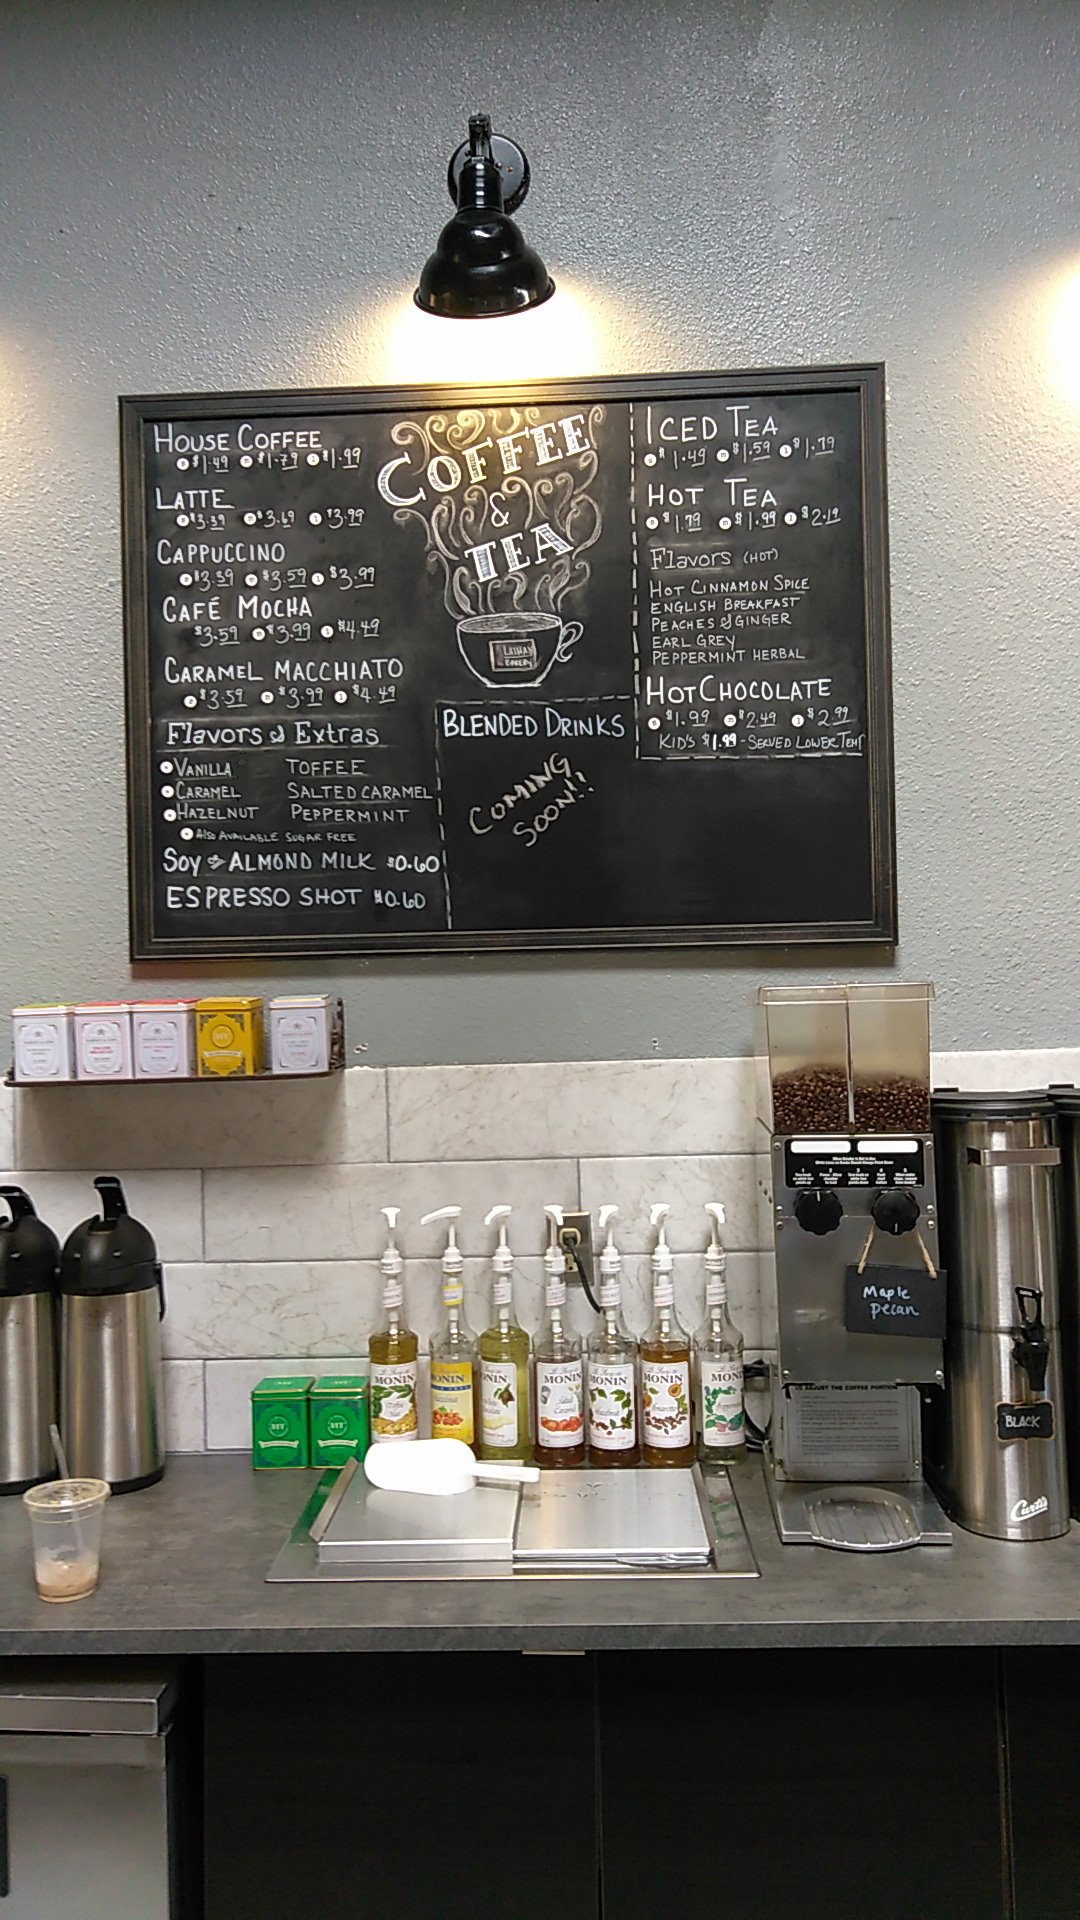 HOUSE COFFEE
$1.49 $1.79 $1.99
LATTE
$3.39 $3.69 $3.99
CAPPUCCINO
$3.39 $3.59 $3.99
CAFÉ MOCHA
$3.59 $3.99 $4.49
CARAMEL MACCHIATO
$3.59 $3.99 $4.49
Flavors & Extras
VANILLA TOFFEE
CARAMEL SALTED CARAMEL
HAZELNUT PEPPERMINT
ALSO AVAILABLE SUGAR FREE
SOY & ALMOND MILK $0.60
ESPRESSO SHOT $0.60
COFFEE
&
TEA
BAKERY
BLENDED DRINKS
COMING
SOON!!
ICED TEA
$1.49 $1.59 $1.79
HOT TEA
$1.79 $1.99 $2.19
Flavors (HOT)
HOT CINNAMON SPICE
ENGLISH BREAKFAST
PEACHES & GINGER
EARL GREY
PEPPERMINT HERBAL
HOT CHOCOLATE
$1.99 $2.49 $2.99
KID'S $1.99 - SERVED LOWER TEMP
Maple
pecan
MONIN
Toffee
Nut
MONIN
MONIN
MONIN
Salted
Caramel
MONIN
Hazelnut
MONIN
Amaretto
MONIN
Peppermint
TO ADJUST THE COFFEE PORTION
BLACK
Curtis